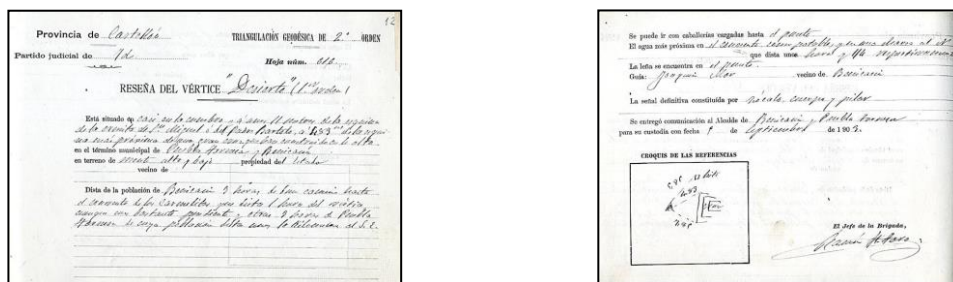 12
Provincia de Castellón TRIANGULACIÓN GEODÉSICA DE 2.º ORDEN
Partido judicial de Id. Hoja núm.
RESEÑA DEL VÉRTICE "Desierto" (1er orden)
Está situado en casi en la cumbre y á unos 11 metros de la esquina
de la ermita de Sn Miguel ó del Bartolo, á 4.83 de la
mas próxima de una gran
en el término municipal de Puebla Tornesa y Benicasim
en terreno de monte alto y bajo propiedad del Estado
vecino de
Dista de la población de Benicasim 3 horas de buen camino hasta
el convento de los Carmelitas que dista 1 hora del vértice
aunque con bastante pendiente y otras 3 horas de Puebla
Tornesa de cuya población dista unos 10 kilómetros al S.E.
Se puede ir con caballerías cargadas hasta el punto
El agua más próxima en el convento como potable, y en una al
que dista unos hora y 1/4 respectivamente
La leña se encuentra en el punto
Guía: Joaquín vecino de Benicasim
La señal definitiva constituída por zócalo, cuerpo y pilar
Se entregó comunicación al Alcalde de Benicasim y Puebla Tornesa
para su custodia con fecha 9 de Septiembre de 1903.
CROQUIS DE LAS REFERENCIAS
4.83
El Jefe de la Brigada,